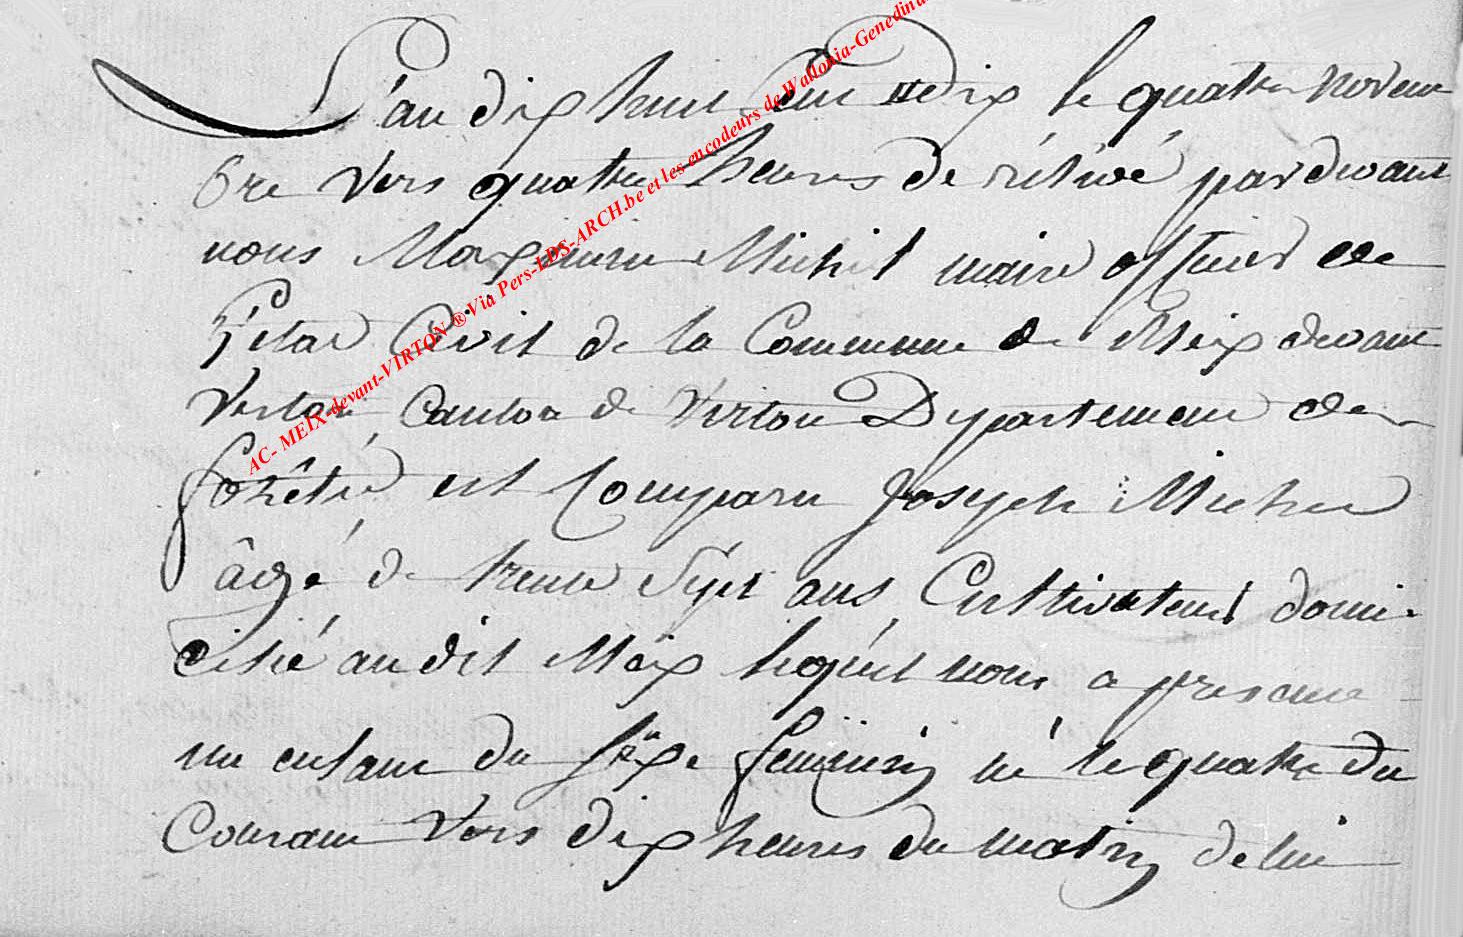 L'an dix huit cent dix le quatre novem
bre vers quatre heures de rélivé pardevant
nous Maximin Michel maire officier de
l'état Civil de la Commune de Meix devant
Virton Canton de Virton Département de
forêtre est Comparu Joseph Michel
âgé de trente Sept ans Cultivateur domi-
cilié audit Meix lequel nous a presenté
un enfant du sexe feminin né le quatre du
Courant vers dix heures du matin de lui
AC- MEIX-devant-VIRTON ® Via Pers-LDS-ARCH.be et les encodeurs de Wallonia-Genedina